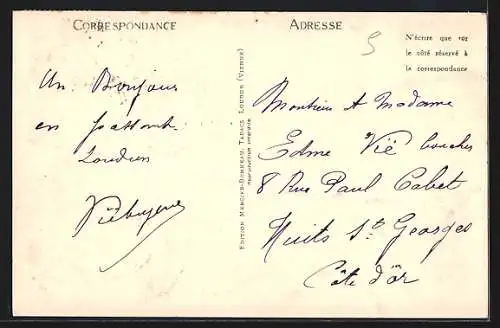 CORRESPONDANCE
ADRESSE
5
N'écrire que sur
le côté réservé à
la correspondance
Un Bonjour
en passant
Loudun
EDITION MERCIER-BONNEAU, TABACS, LOUDUN (VIENNE)
Monsieur et Madame
Edme Vié boucher
8 Rue Paul Cabet
Nuits St Georges
Côte d'Or